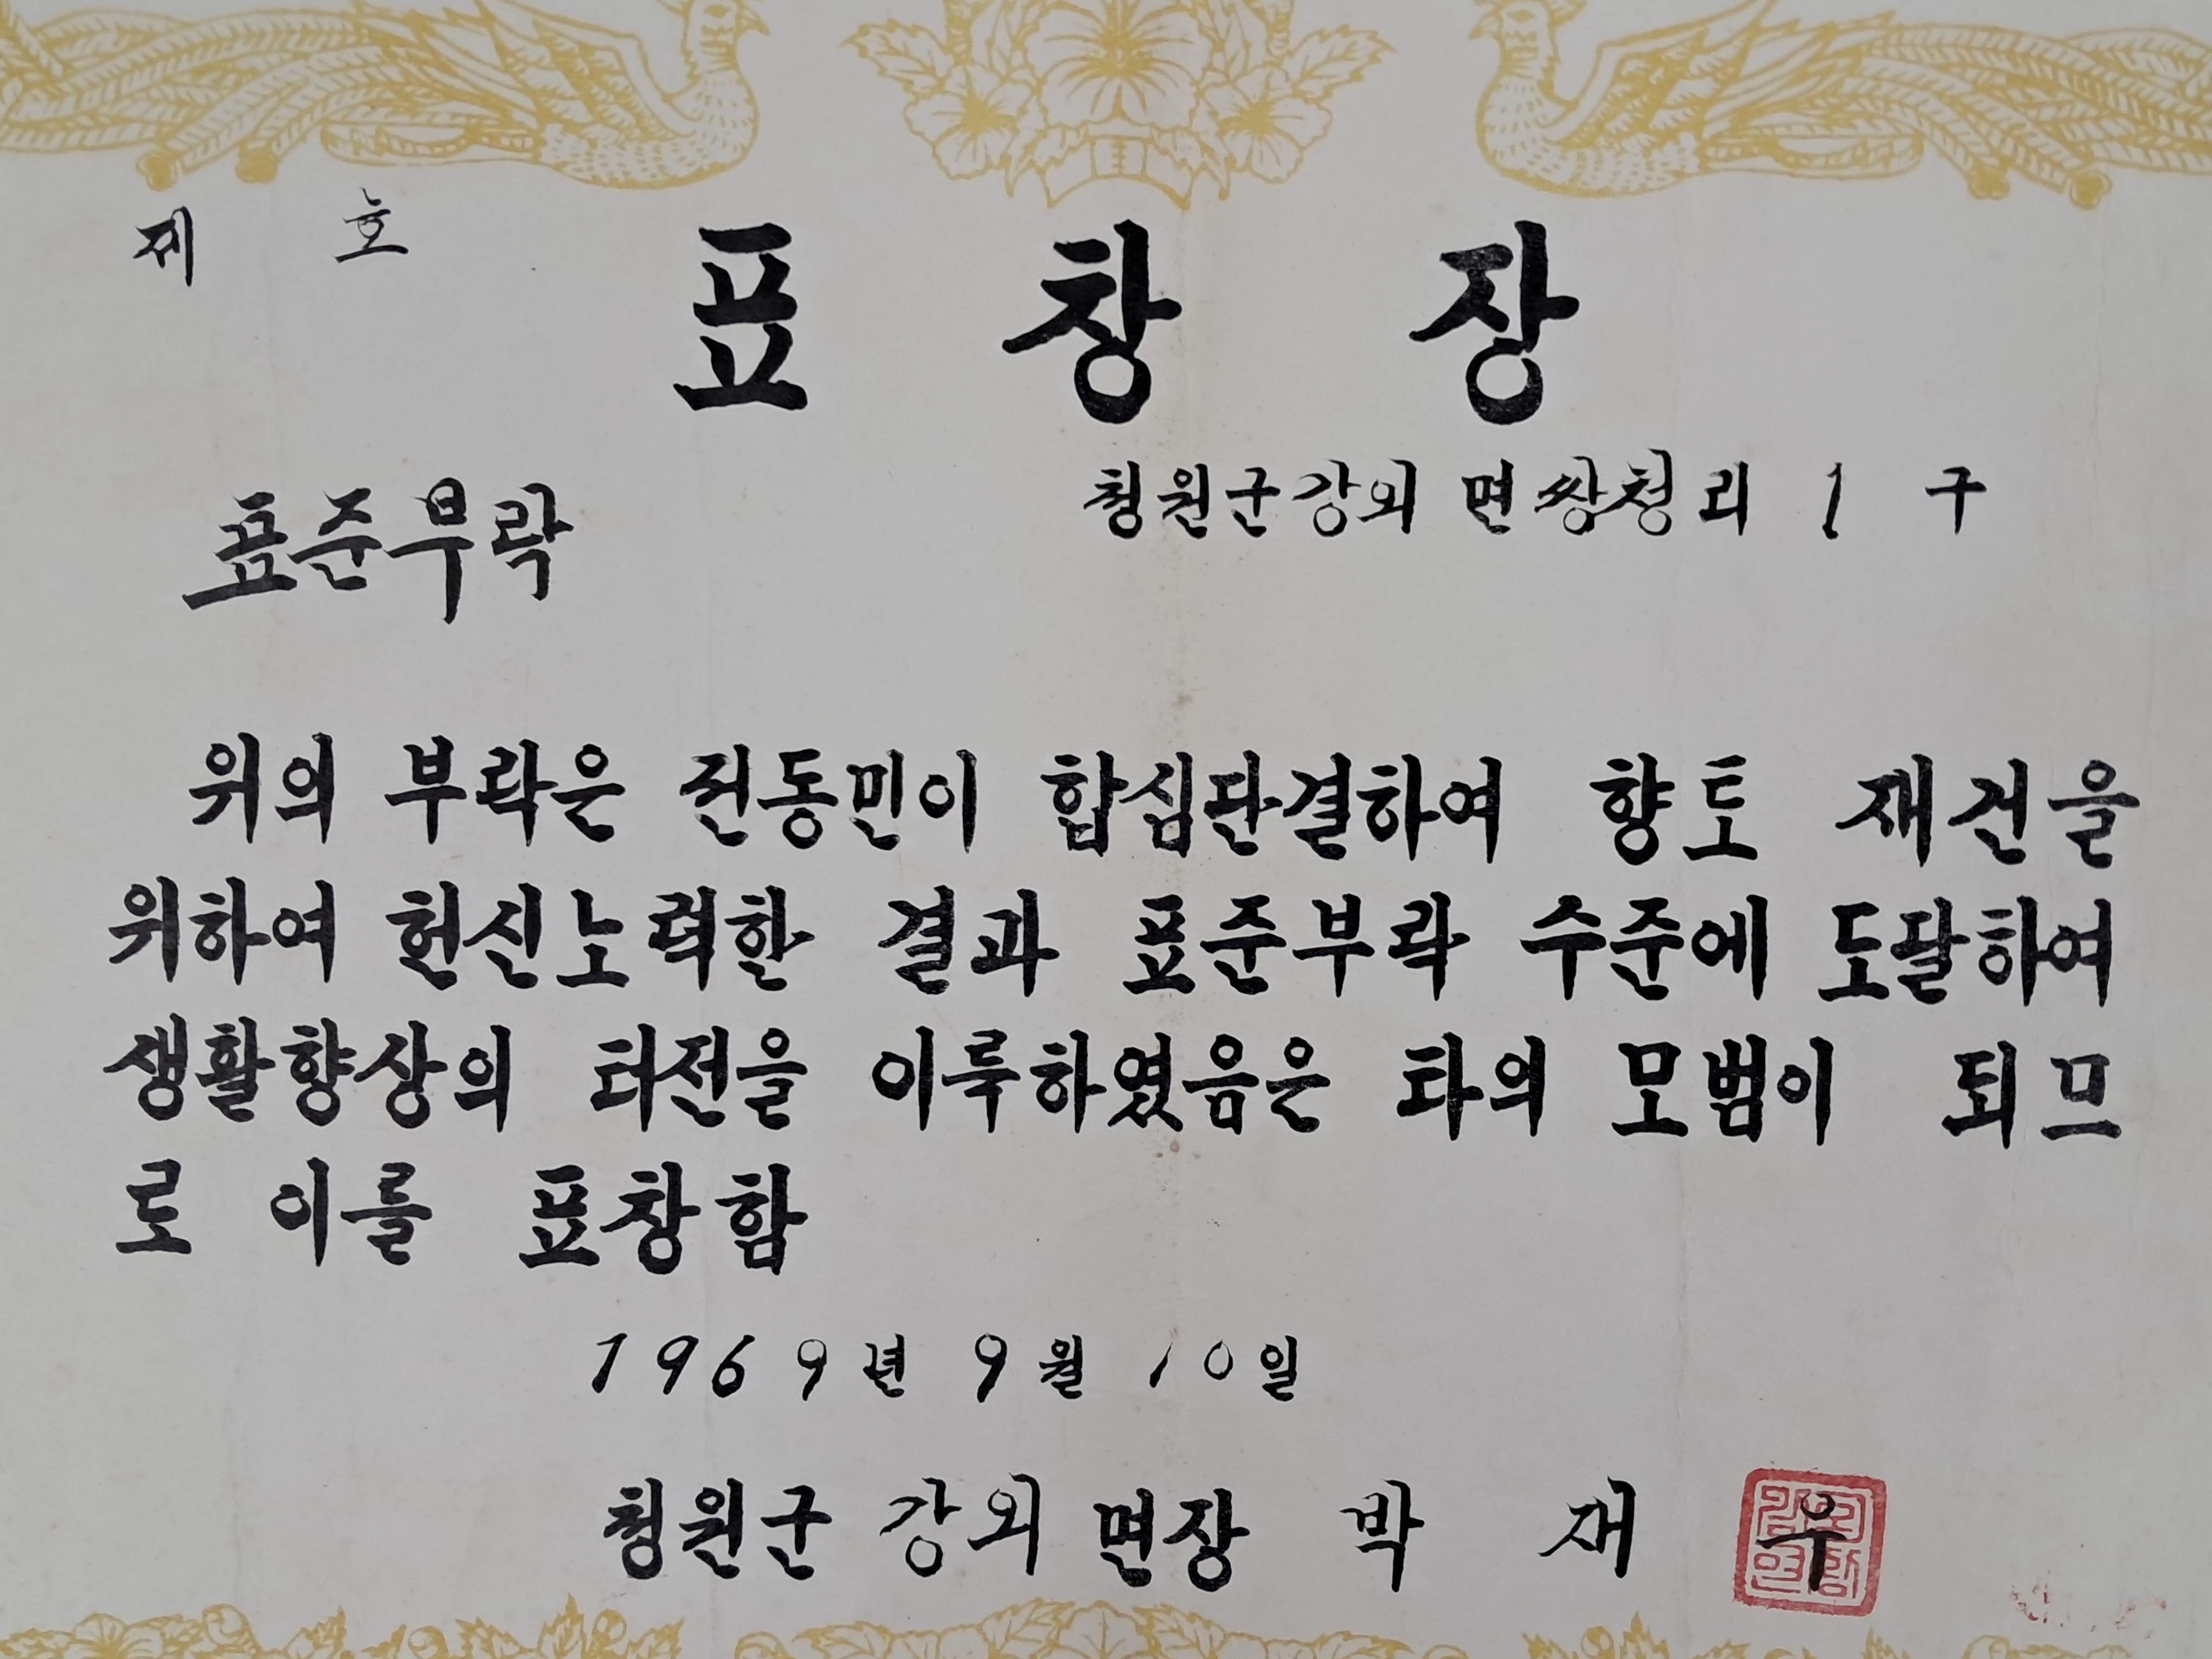 제 호
표 창 장
청원군강외면쌍청리 1 구
표준부락
위의 부락은 전동민이 합심단결하여 향토 재건을
위하여 헌신노력한 결과 표준부락 수준에 도달하여
생활향상의 터전을 이룩하였음은 타의 모범이 되므
로 이를 표창함
1969년 9월 10일
청원군 강외면장 박 재 우